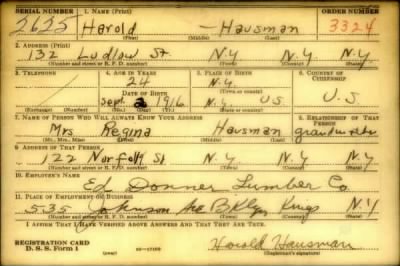 SERIAL NUMBER 1. NAME (Print) ORDER NUMBER
2625 Harold — Hausman 3324
(First) (Middle) (Last)
2. ADDRESS (Print)
132 Ludlow St. N.Y N.Y. N.Y
(Number and street or R. F. D. number) (Town) (County) (State)
3. TELEPHONE 4. AGE IN YEARS 5. PLACE OF BIRTH 6. COUNTRY OF CITIZENSHIP
24 N.Y.
DATE OF BIRTH (Town or county)
Sept. 2 1916 N.Y U.S. U.S.
(Exchange) (Number) (Mo.) (Day) (Yr.) (State or country)
7. NAME OF PERSON WHO WILL ALWAYS KNOW YOUR ADDRESS 8. RELATIONSHIP OF THAT PERSON
Mrs Regina Hausman grandmother
(Mr., Mrs., Miss) (First) (Middle) (Last)
9. ADDRESS OF THAT PERSON
122 Norfolk St. N.Y. N.Y N.Y
(Number and street or R. F. D. number) (Town) (County) (State)
10. EMPLOYER'S NAME
Ed Donner Lumber Co.
11. PLACE OF EMPLOYMENT OR BUSINESS
535 Johnson Ave Bklyn Kings N.Y
(Number and street or R. F. D. number) (Town) (County) (State)
I AFFIRM THAT I HAVE VERIFIED ABOVE ANSWERS AND THAT THEY ARE TRUE.
REGISTRATION CARD
D. S. S. Form 1 (over) Harold Hausman
(Registrant's signature)